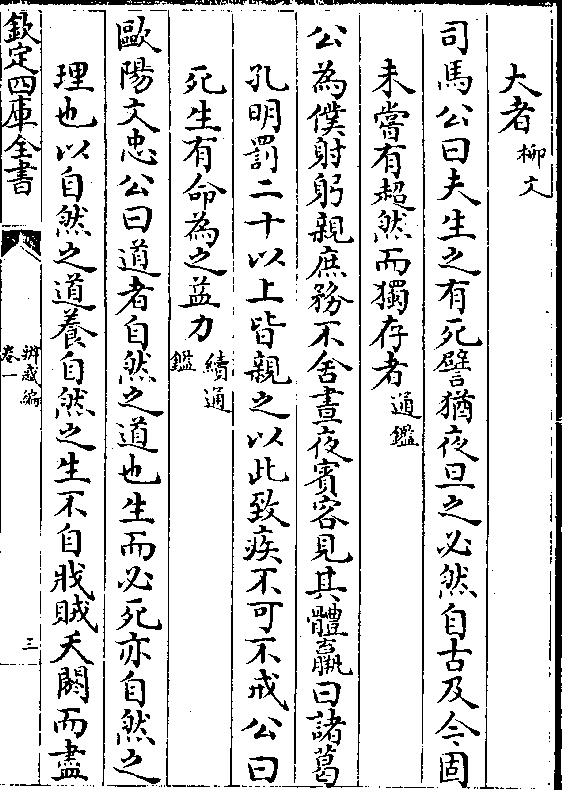 大者柳文
司馬公曰夫生之有死譬猶夜旦之必然自古及今固
未嘗有超然而獨存者通鑑
公為僕射躬親庶務不舍晝夜賓客見其體羸曰諸葛
孔明罰二十以上皆親之以此致疾不可不戒公曰
死生有命為之益力續通鑑
歐陽文忠公曰道者自然之道也生而必死亦自然之
理也以自然之道養自然之生不自戕賊夭閼而盡
欽定四庫全書
辨惑編
卷一
三